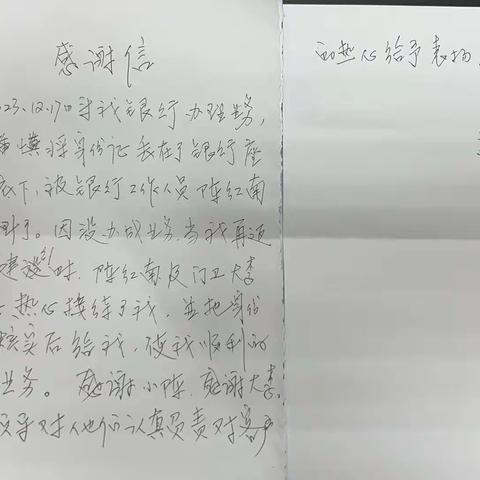 感谢信
023.12.17日于我银行办理业务,
慎将身份证丢在了银行座
底下,被银行工作人员陈红南
到了。因没办成业务,当我再迈
建设行时,陈红南及门卫大李
热心接待了我,并把身份
核实后给我,使我顺利的
业务。感谢小陈,感谢大李。
领导对他们认真负责对客户
的热心给予表扬